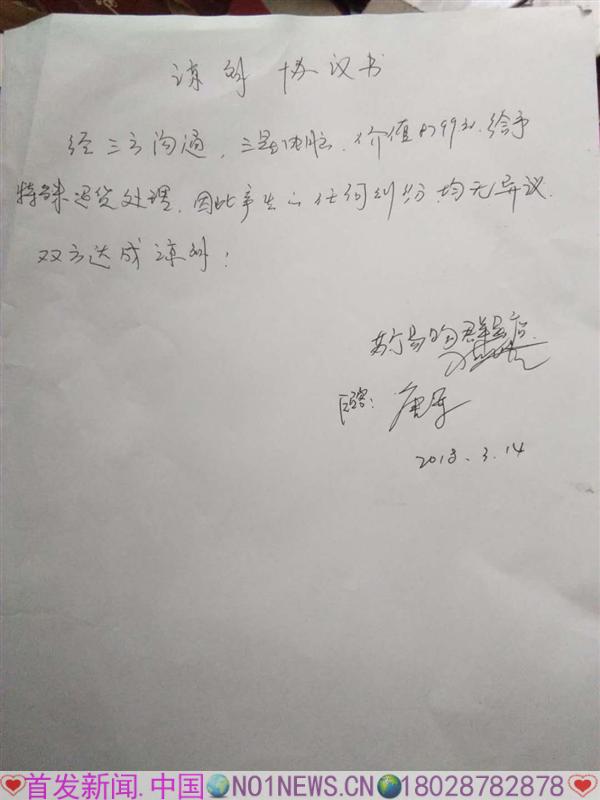 谅解协议书
经三方沟通，三星电脑，价值4799元，给予
特殊退货处理，因此产生的任何纠纷均无异议.
双方达成谅解！
苏宁易购 店.
顾客：唐
2018.3.14
首发新闻.中国 NO1NEWS.CN 18028782878